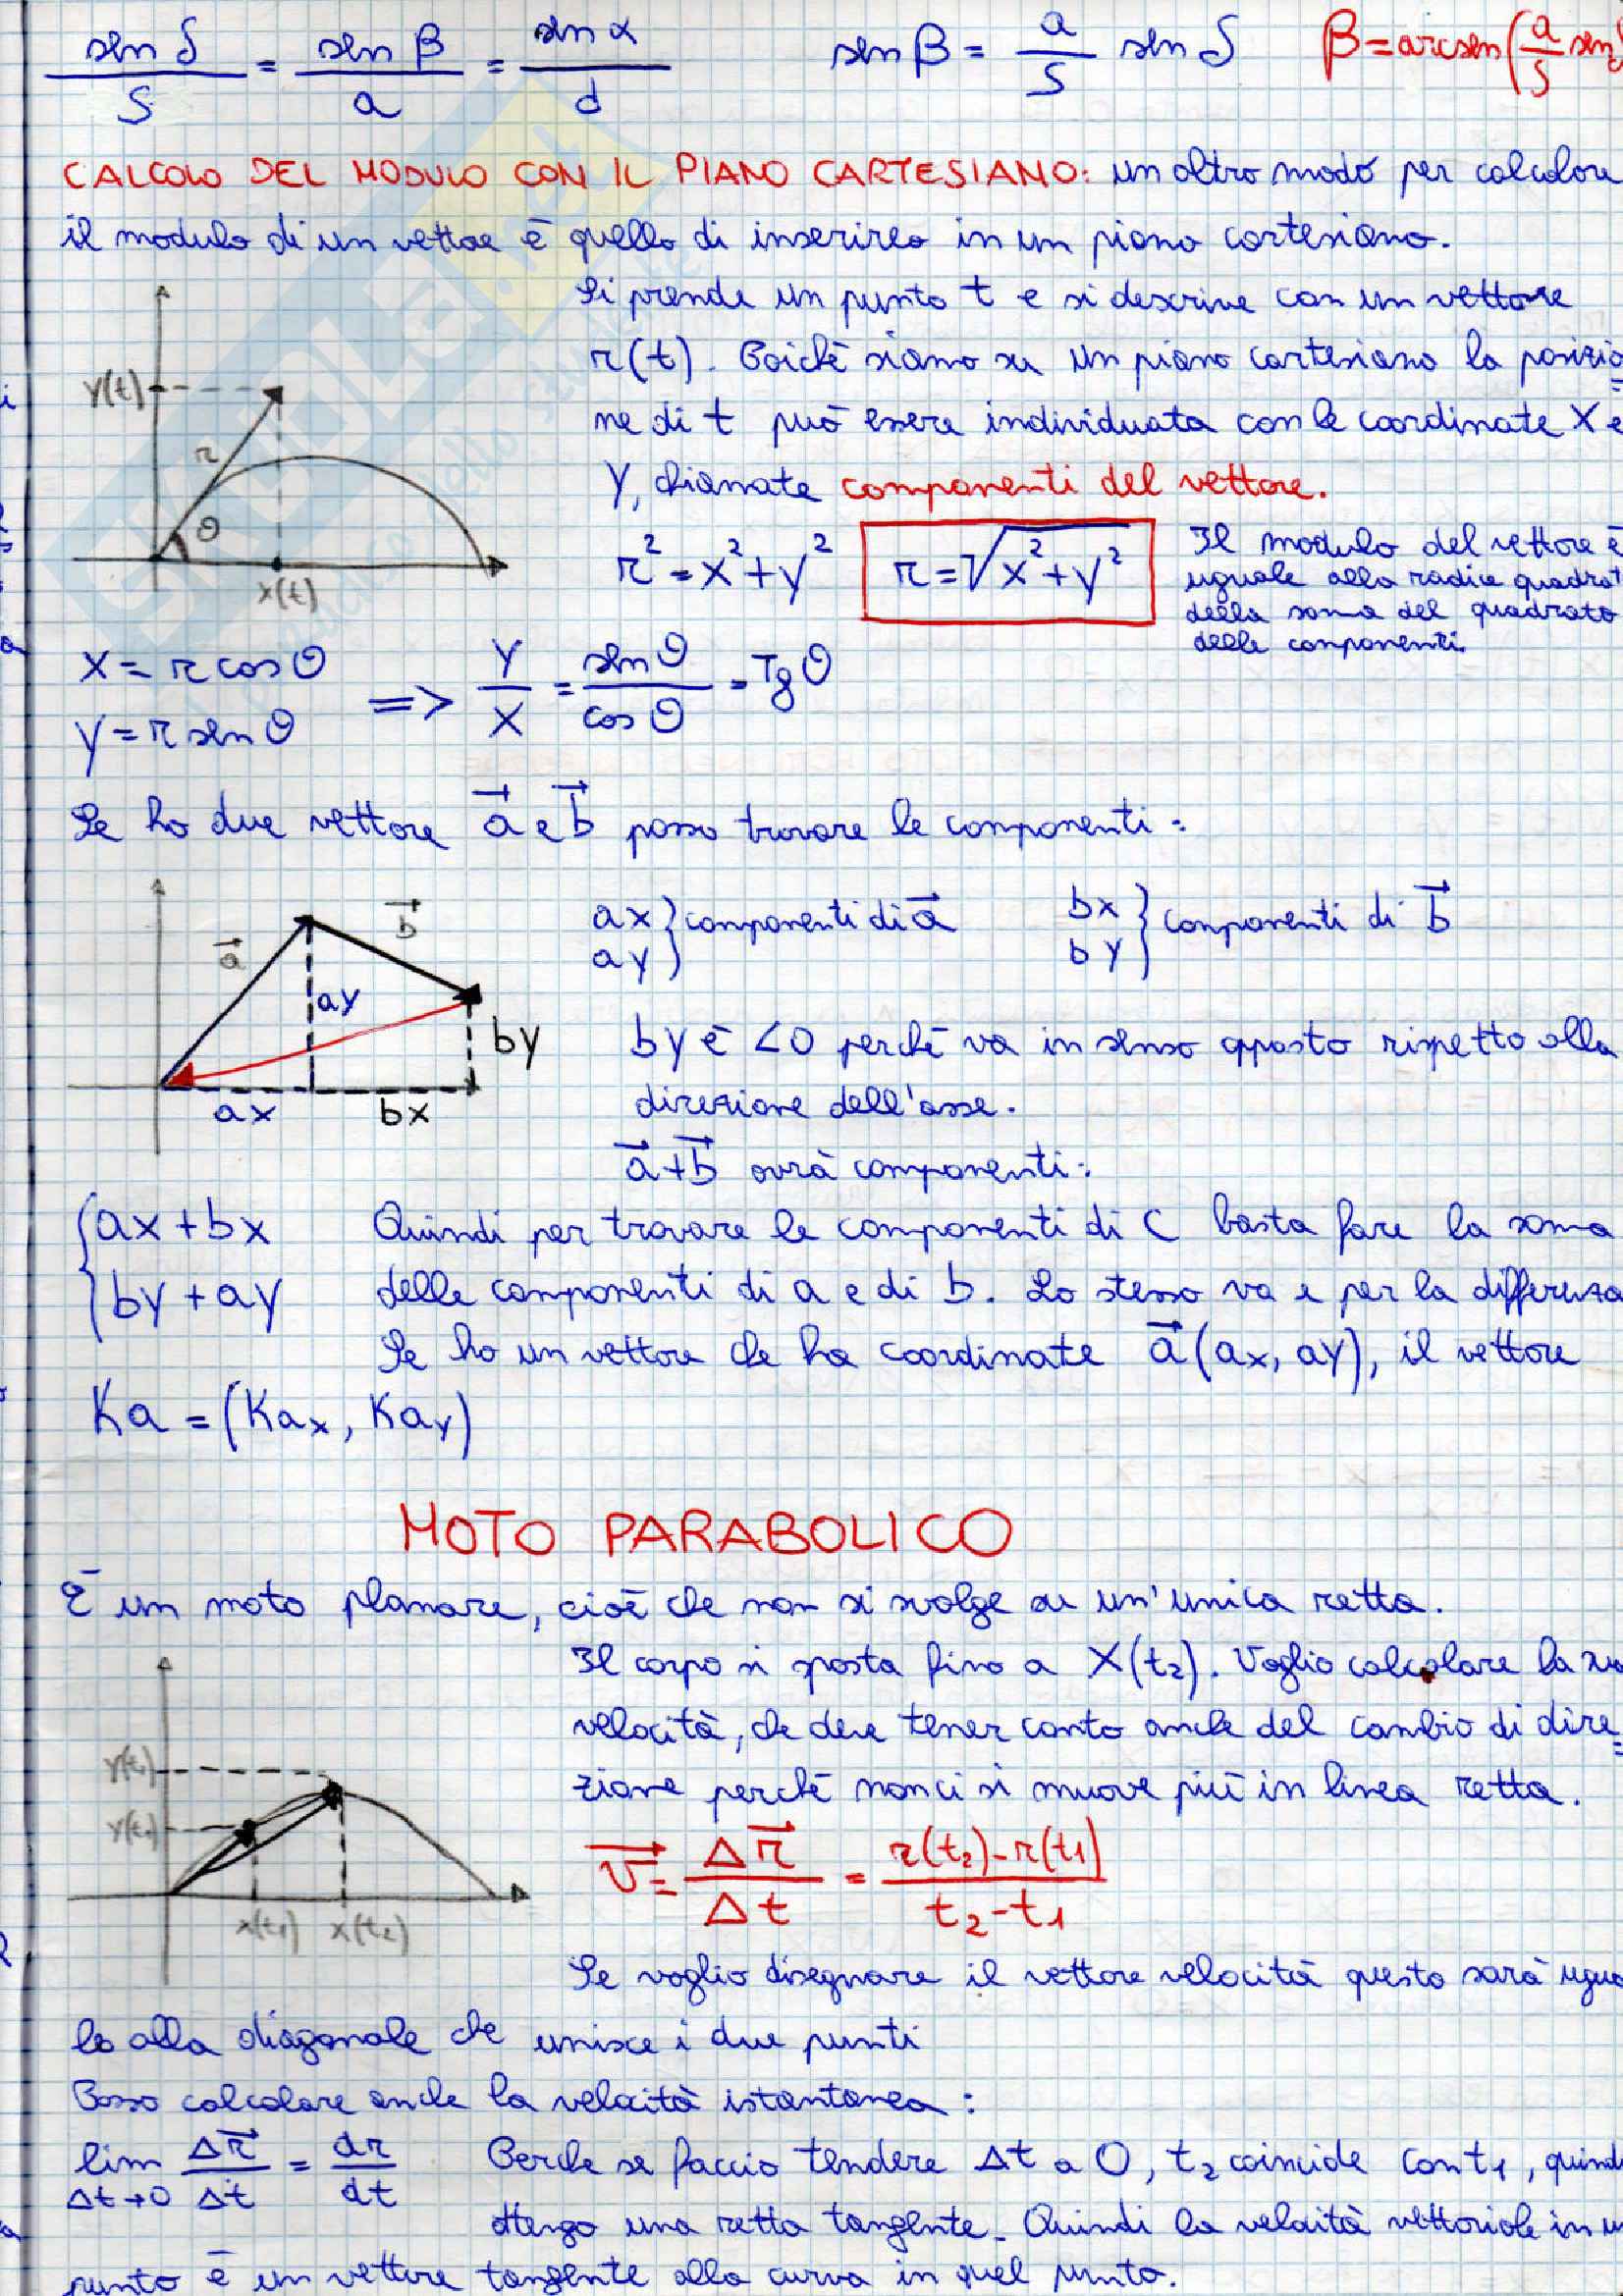 sen δ / S = sen β / a = sen α / d    sen β = a / S sen δ    β = arcsen (a / S sen
CALCOLO DEL MODULO CON IL PIANO CARTESIANO: un altro modo per calcolare
il modulo di un vettore è quello di inserirlo in un piano cartesiano.
Si prende un punto t e si descrive con un vettore
r(t). Poichè siamo su un piano cartesiano la posizio
ne di t può essere individuata con le coordinate X e
Y, chiamate componenti del vettore.
Y(t)
r
θ
X(t)
r² = x² + y²    r = √x² + y²
Il modulo del vettore è
uguale alla radice quadrat
della soma del quadrato
delle componenti.
X = r cos θ
Y = r sen θ
=> Y / X = sen θ / cos θ = Tg θ
Se ho due vettore a⃗ e b⃗ posso trovare le componenti:
a⃗
b⃗
ay
by
ax
bx
ax } componenti di a⃗    bx } componenti di b⃗
ay    by
by è <0 perchè va in senso opposto rispetto alla
direzione dell'asse.
a⃗+b⃗ avrà componenti:
{ ax + bx    Quindi per trovare le componenti di C basta fare la soma
by + ay    delle componenti di a e di b. Lo stesso va e per la differenza
Se ho un vettore che ha coordinate a⃗(ax, ay), il vettore
Ka = (Kax, Kay)
MOTO PARABOLICO
È un moto planare, cioè che non si svolge su un'unica retta.
Il corpo si sposta fino a X(t₂). Voglio calcolare la su
velocità, che deve tener conto anche del cambio di dire
zione perchè non ci si muove più in linea retta.
Y(t₁)
X(t₁)
X(t₂)
v⃗ = Δr⃗ / Δt = r(t₂) - r(t₁) / t₂ - t₁
Se voglio disegnare il vettore velocità questo sarà ugua
le alla diagonale che unisce i due punti
Posso calcolare anche la velocità istantanea:
lim Δt→0 Δr⃗ / Δt = dr / dt    Perche se faccio tendere Δt a 0, t₂ coincide con t₁, quindi
ottengo una retta tangente. Quindi la velocità vettoriale in u
punto è un vettore tangente alla curva in quel punto.